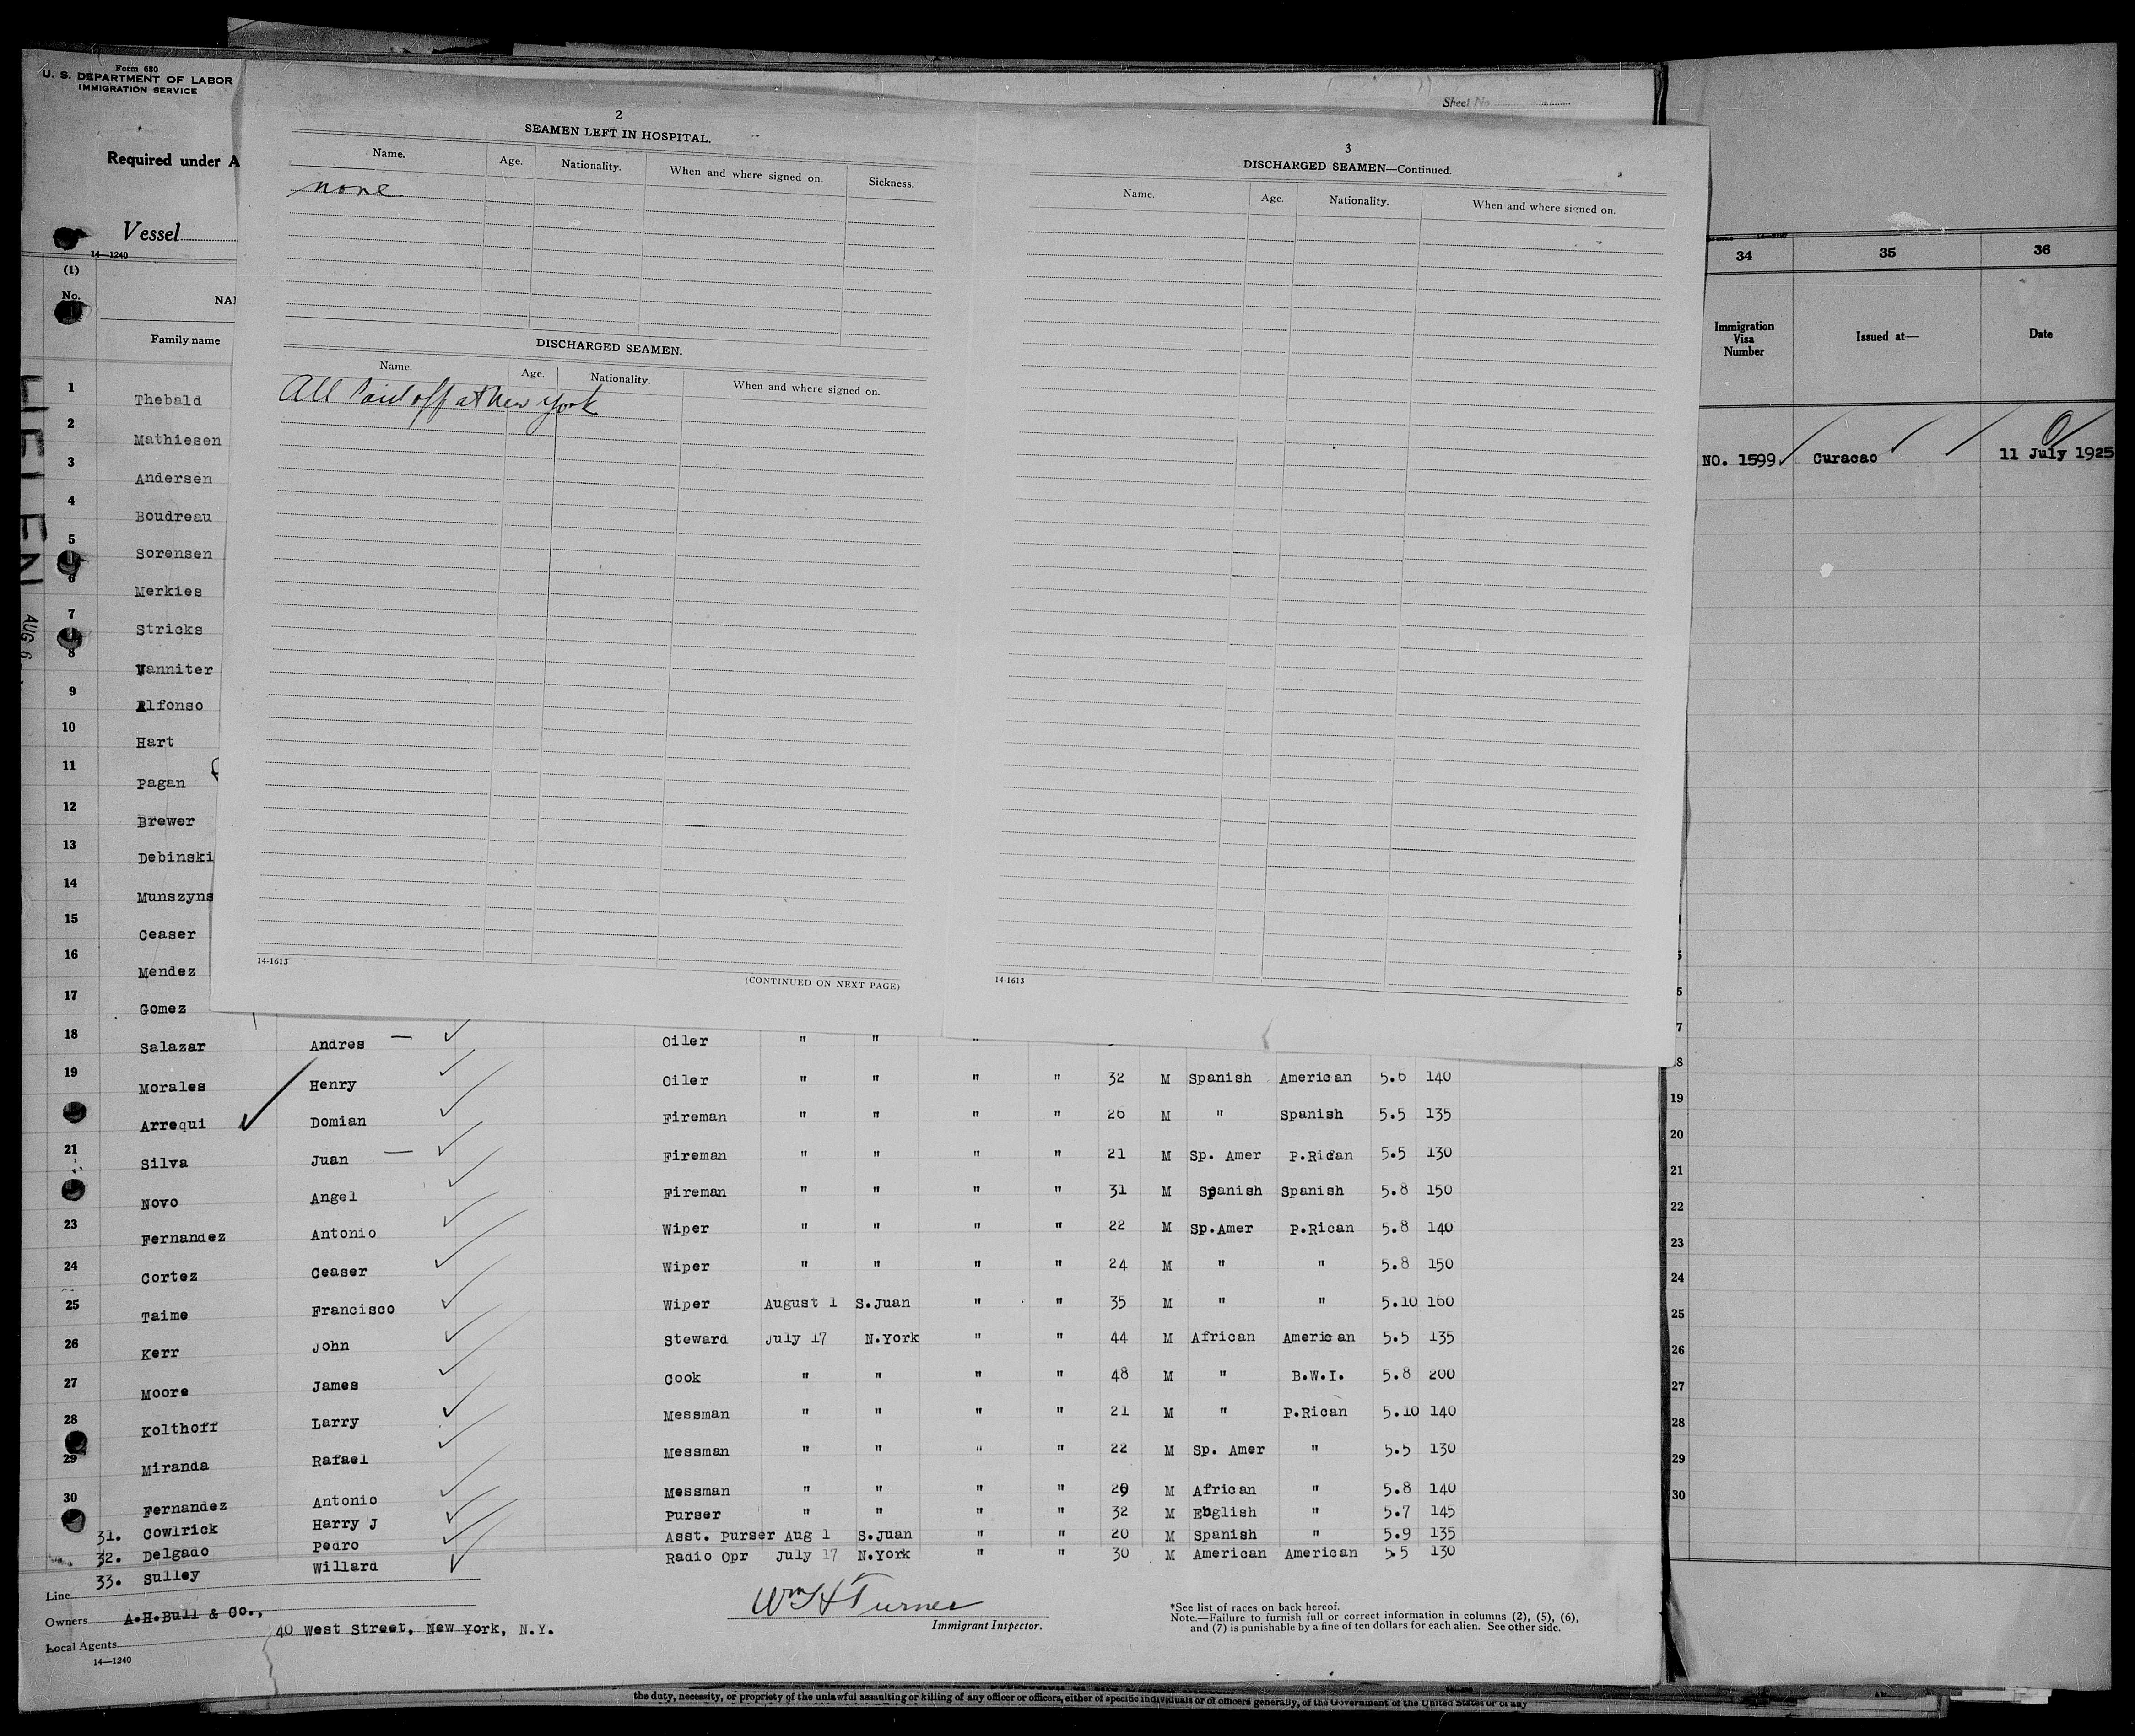 Form 680
U. S. DEPARTMENT OF LABOR
IMMIGRATION SERVICE
Required under A
Vessel
14—1240
(1)
No.
Family name
HELEN
AUG 6
Sheet No.
2
SEAMEN LEFT IN HOSPITAL.
Name. Age. Nationality. When and where signed on. Sickness.
none
DISCHARGED SEAMEN.
Name. Age. Nationality. When and where signed on.
All Paid off at New York
14-1613
(CONTINUED ON NEXT PAGE)
3
DISCHARGED SEAMEN—Continued.
Name. Age. Nationality. When and where signed on.
14-1613
34 35 36
Immigration Visa Number Issued at— Date
NO. 1599 Curacao 11 July 1925
1 Thebald
2 Mathiesen
3 Andersen
4 Boudreau
5 Sorensen
6 Merkies
7 Stricks
8 Vanniter
9 Alfonso
10 Hart
11 Pagan
12 Brewer
13 Debinski
14 Munszyns
15 Ceaser
16 Mendez
17 Gomez
18 Salazar Andres — Oiler " " "
19 Morales Henry Oiler " " " " 32 M Spanish American 5.6 140
Arrequi Domian Fireman " " " " 26 M " Spanish 5.5 135
21 Silva Juan — Fireman " " " " 21 M Sp. Amer P.Rican 5.5 130
Novo Angel Fireman " " " " 31 M Spanish Spanish 5.8 150
23 Fernandez Antonio Wiper " " " " 22 M Sp.Amer P.Rican 5.8 140
24 Cortez Ceaser Wiper " " " " 24 M " " 5.8 150
25 Taime Francisco Wiper August 1 S.Juan " " 35 M " " 5.10 160
26 Kerr John Steward July 17 N.York " " 44 M African American 5.5 135
27 Moore James Cook " " " " 48 M " B.W.I. 5.8 200
28 Kolthoff Larry Messman " " " " 21 M " P.Rican 5.10 140
29 Miranda Rafael Messman " " " " 22 M Sp. Amer " 5.5 130
30 Fernandez Antonio Messman " " " " 29 M African " 5.8 140
31. Cowlrick Harry J Purser " " " " 32 M English " 5.7 145
32. Delgado Pedro Asst. Purser Aug 1 S.Juan " " 20 M Spanish " 5.9 135
33. Sulley Willard Radio Opr July 17 N.York " " 30 M American American 5.5 130
18
19
20
21
22
23
24
25
26
27
28
29
30
Line
Owners A.H.Bull & Co.,
Local Agents 40 West Street, New York, N.Y.
14—1240
Wm H Turner
Immigrant Inspector.
*See list of races on back hereof.
Note.—Failure to furnish full or correct information in columns (2), (5), (6),
and (7) is punishable by a fine of ten dollars for each alien. See other side.
the duty, necessity, or propriety of the unlawful assaulting or killing of any officer or officers, either of specific individuals or of officers generally, of the Government of the United States or of any